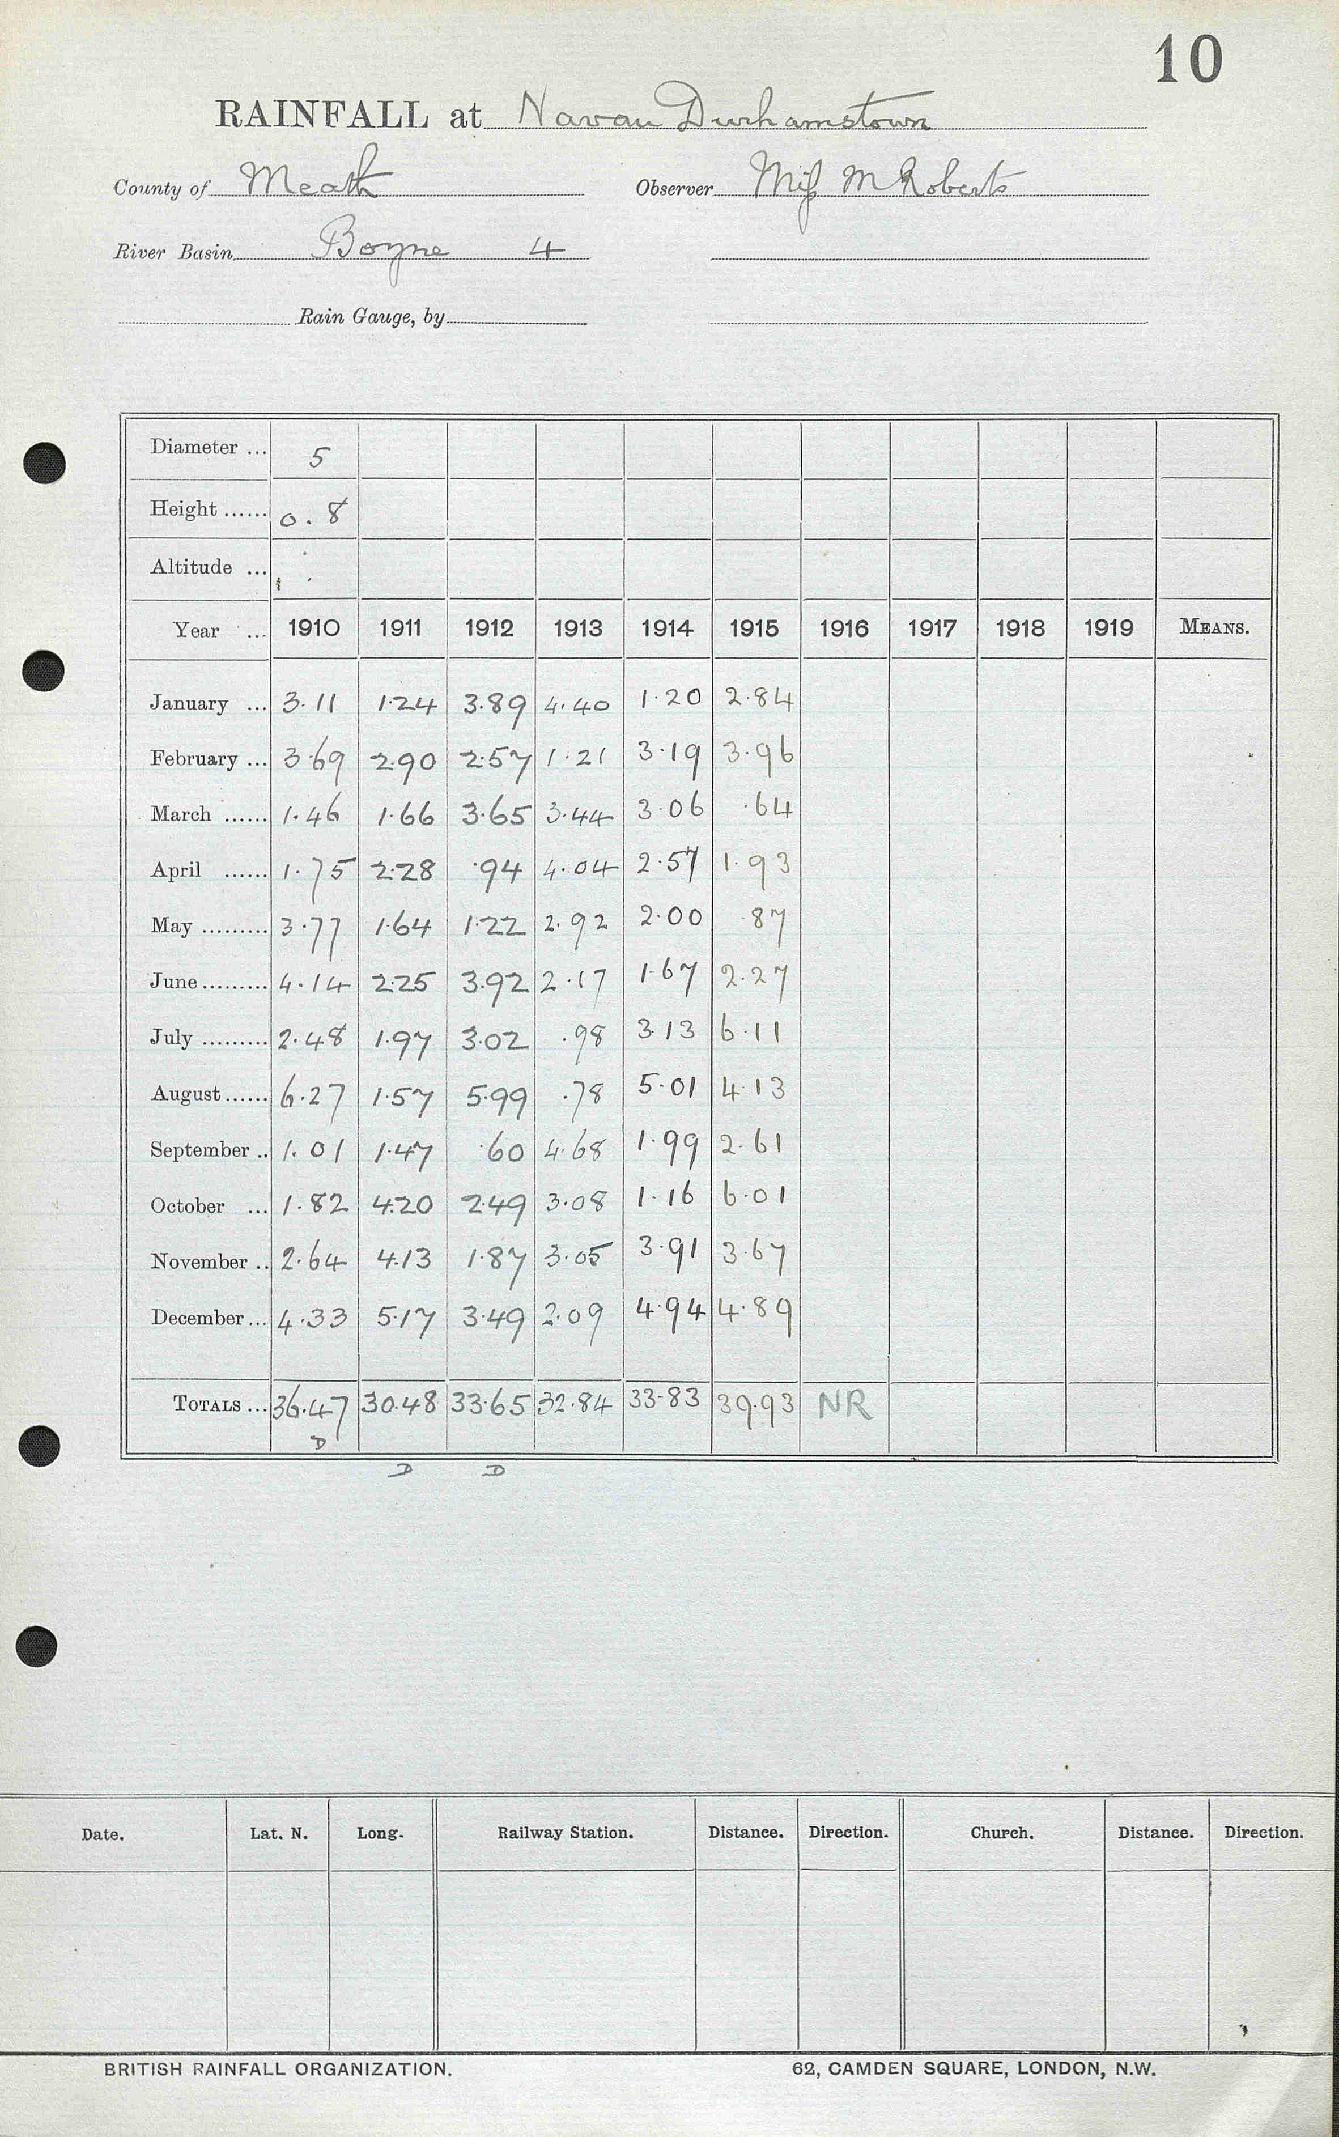 10
RAINFALL at Navan Durhamstown
County of Meath Observer Miss M Roberts
River Basin Boyne 4
Rain Gauge, by
Diameter ... 5
Height ...... 0.8
Altitude ...
Year ... 1910 1911 1912 1913 1914 1915 1916 1917 1918 1919 MEANS.
January ... 3.11 1.24 3.89 4.40 1.20 2.84
February ... 3.69 2.90 2.57 1.21 3.19 3.96
March ...... 1.46 1.66 3.65 3.44 3.06 .64
April ...... 1.75 2.28 .94 4.04 2.57 1.93
May ......... 3.77 1.64 1.22 2.92 2.00 .87
June......... 4.14 2.25 3.92 2.17 1.67 2.27
July ......... 2.48 1.97 3.02 .98 3.13 6.11
August...... 6.27 1.57 5.99 .78 5.01 4.13
September .. 1.01 1.47 .60 4.68 1.99 2.61
October ... 1.82 4.20 2.49 3.08 1.16 6.01
November .. 2.64 4.13 1.87 3.05 3.91 3.67
December... 4.33 5.17 3.49 2.09 4.94 4.89
TOTALS ... 36.47 30.48 33.65 32.84 33.83 39.93 NR
D
D D
Date. Lat. N. Long. Railway Station. Distance. Direction. Church. Distance. Direction.
BRITISH RAINFALL ORGANIZATION. 62, CAMDEN SQUARE, LONDON, N.W.